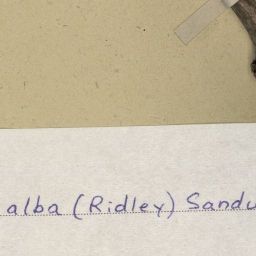 alba (Ridley) Sandw